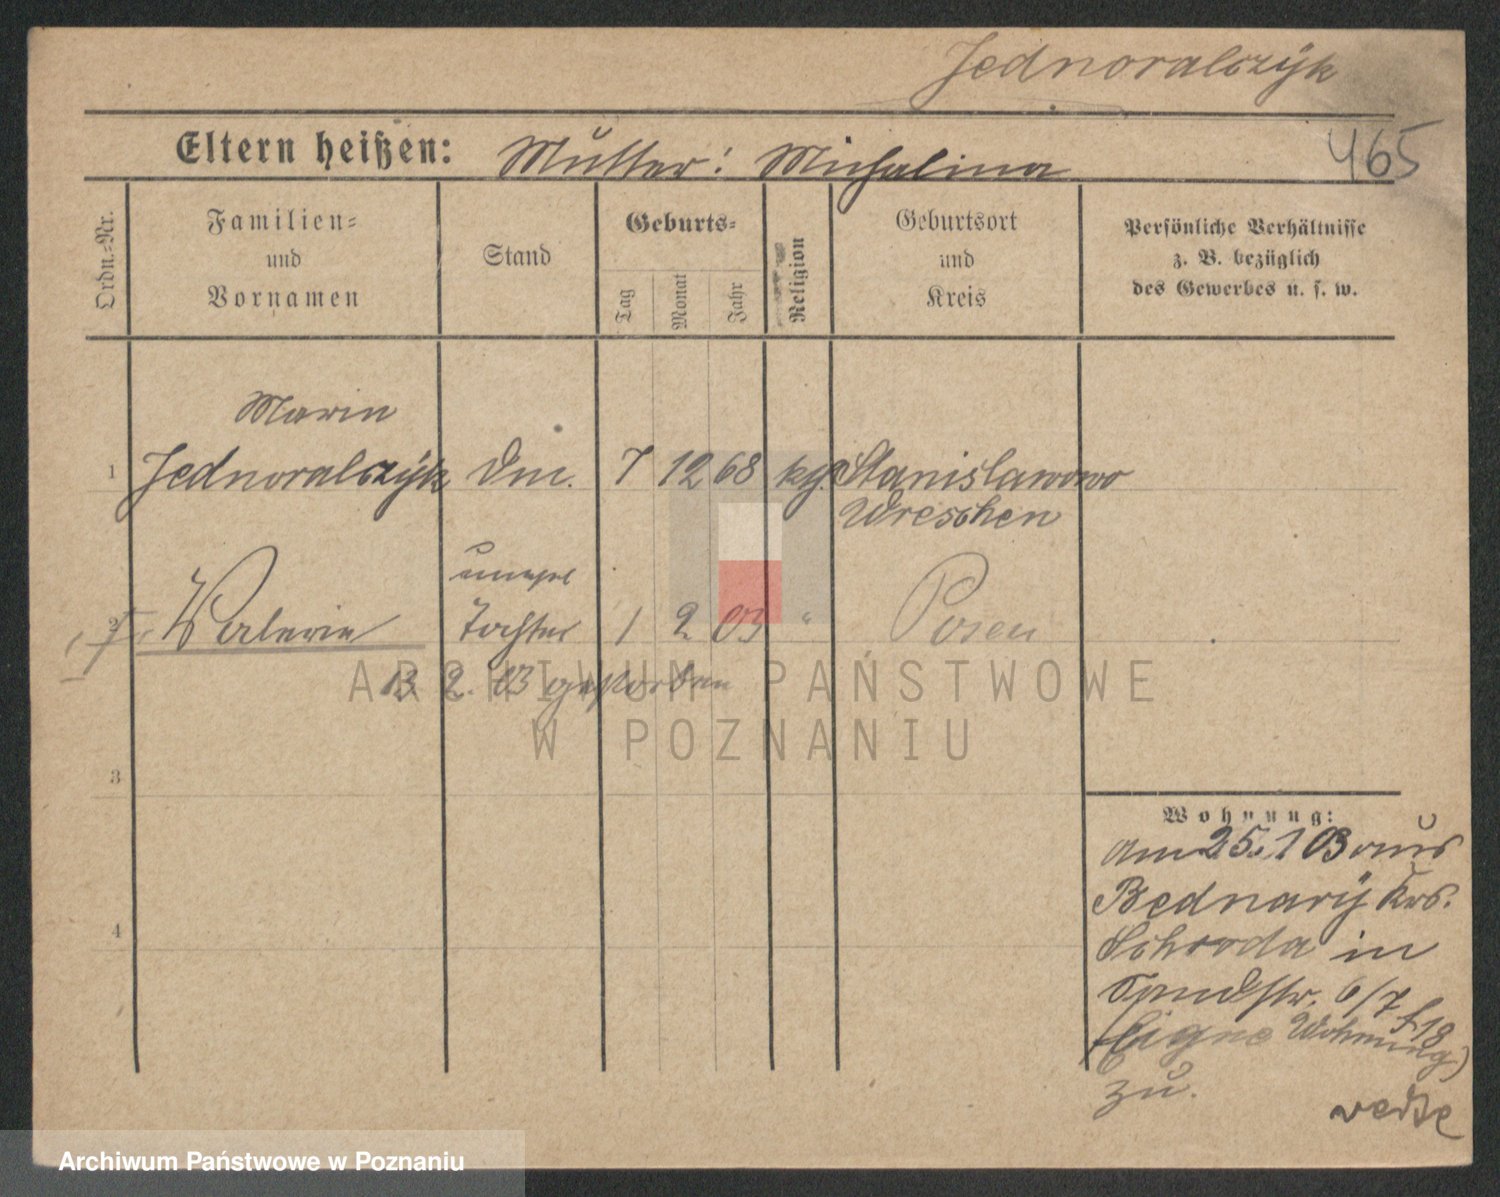 Jednoralczÿk
465
Eltern heißen: Mutter: Michalina
Ordn.-Nr.
Familien-
und
Vornamen
Stand
Geburts-
Tag
Monat
Jahr
Religion
Geburtsort
und
Kreis
Persönliche Verhältnisse
z. B. bezüglich
des Gewerbes u. s. w.
Marie
1 Jednoralczÿk Dm. 7 12 68 kg. Stanislawowo
Wreschen
unehel
2 Valerie Tochter 1 2 03 " Posen
13. 2. 03 gestorben
3
4
Wohnung:
am 25.1 03 aus
Bednarÿ Krs.
Schroda in
Sandstr. 6/7
(Eigne Wohnung)
zu.
ARCHIWUM PAŃSTWOWE
W POZNANIU
Archiwum Państwowe w Poznaniu